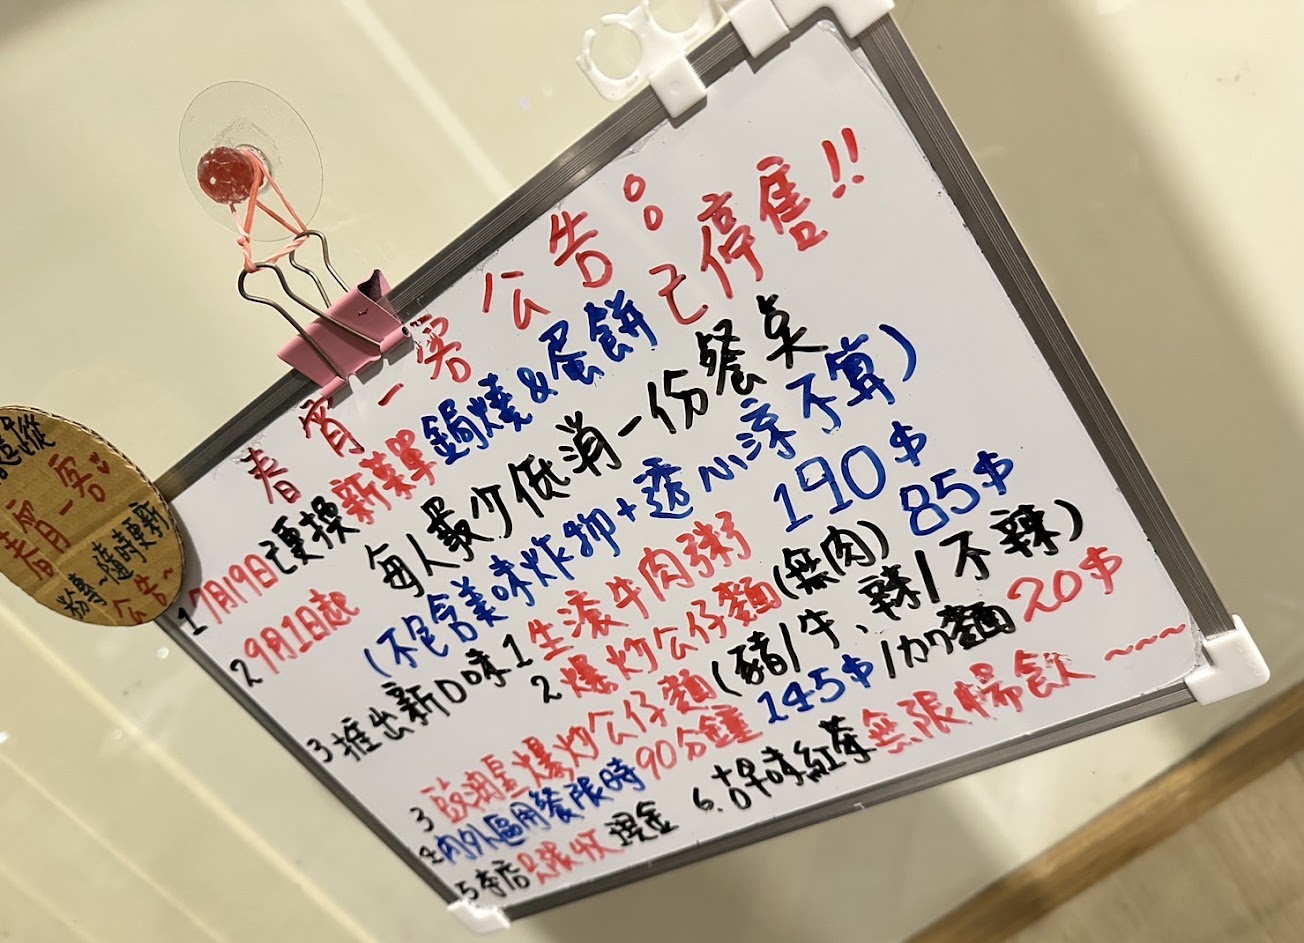 追蹤
春宵一客
粉專~隨時更新
公告~
春宵一客公告:
1 7月19日已更換新菜單鍋燒&蛋餅已停售!!
2 9月1日起 每人最少低消一份餐点
(不包含美味炸物+透心涼不算)
3 推出新口味 1 生滾牛肉粥 190$
2 爆炒公仔麵(無肉) 85$
3 豉油皇爆炒公仔麵(豬/牛、辣/不辣) 145$/加麵20$
4 內外區用餐限時90分鐘
5 本店只收現金 6. 古早味紅茶無限暢飲~~~~